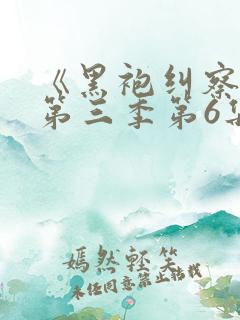 《黑袍纠察
第三季第6集
嫣然轻笑
未经同意禁止转载